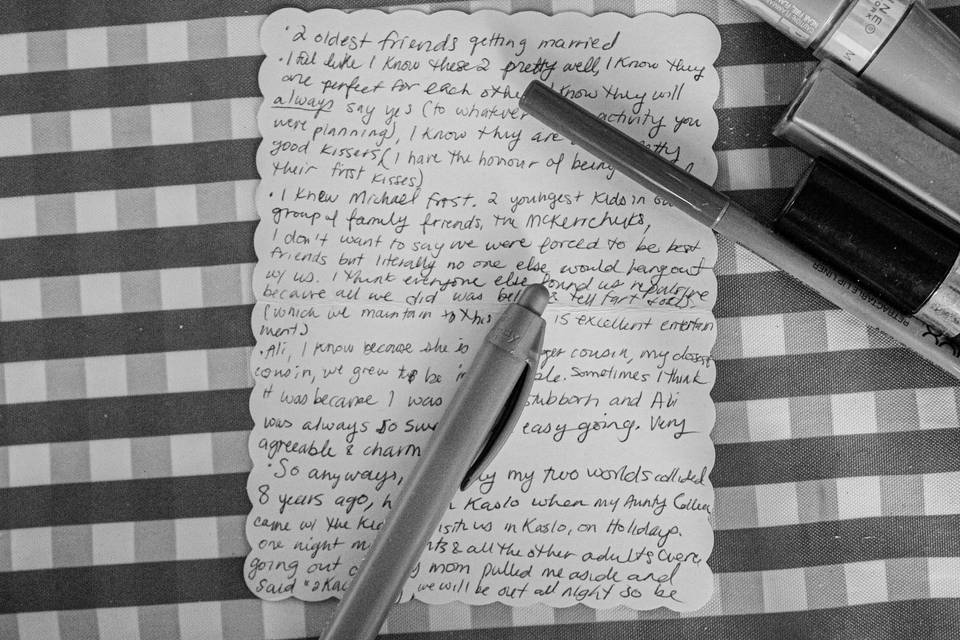 · 2 oldest friends getting married
· I feel like I know these 2 pretty well, I know they
are perfect for each other, I know they will
always say yes (to whatever activity you
were planning), I know they are
good kissers, (I have the honour of being
their first kisses)
· I knew Michael first. 2 youngest kids in our
group of family friends, the McKerrchers,
I don't want to say we were forced to be best
friends but literally no one else would hang out
w/ us. I think everyone else found us repulsive
because all we did was & tell fart jokes
(which we maintain to this is excellent entertain
ment)
· Ali, I know because she is cousin, my closest
cousin, we grew to be Sometimes I think
it was because I was stubborn and Ali
was always so easy going. Very
agreeable & charm
· So anyways, my two worlds collided
8 years ago, Kaslo when my Aunty Colleen
came w/ the kids us in Kaslo, on Holidays.
one night & all the other adults were
going out mom pulled me aside and
said we will be out all night so be
RETRACTABLE EYELINER